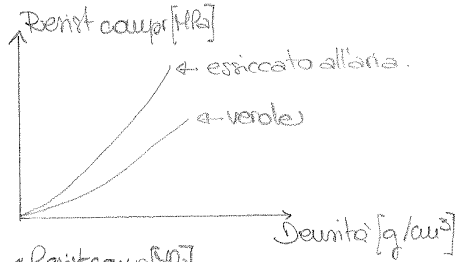 Resist compr [MPa]
← essiccato all'aria.
← verde
Densità [g/cm³]
Resist compr [MPa]